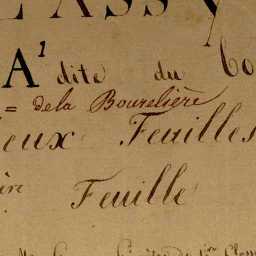 L'ASSY
A¹ dite du Bo
= dela Bourelière
ieux Feuilles
ire Feuille